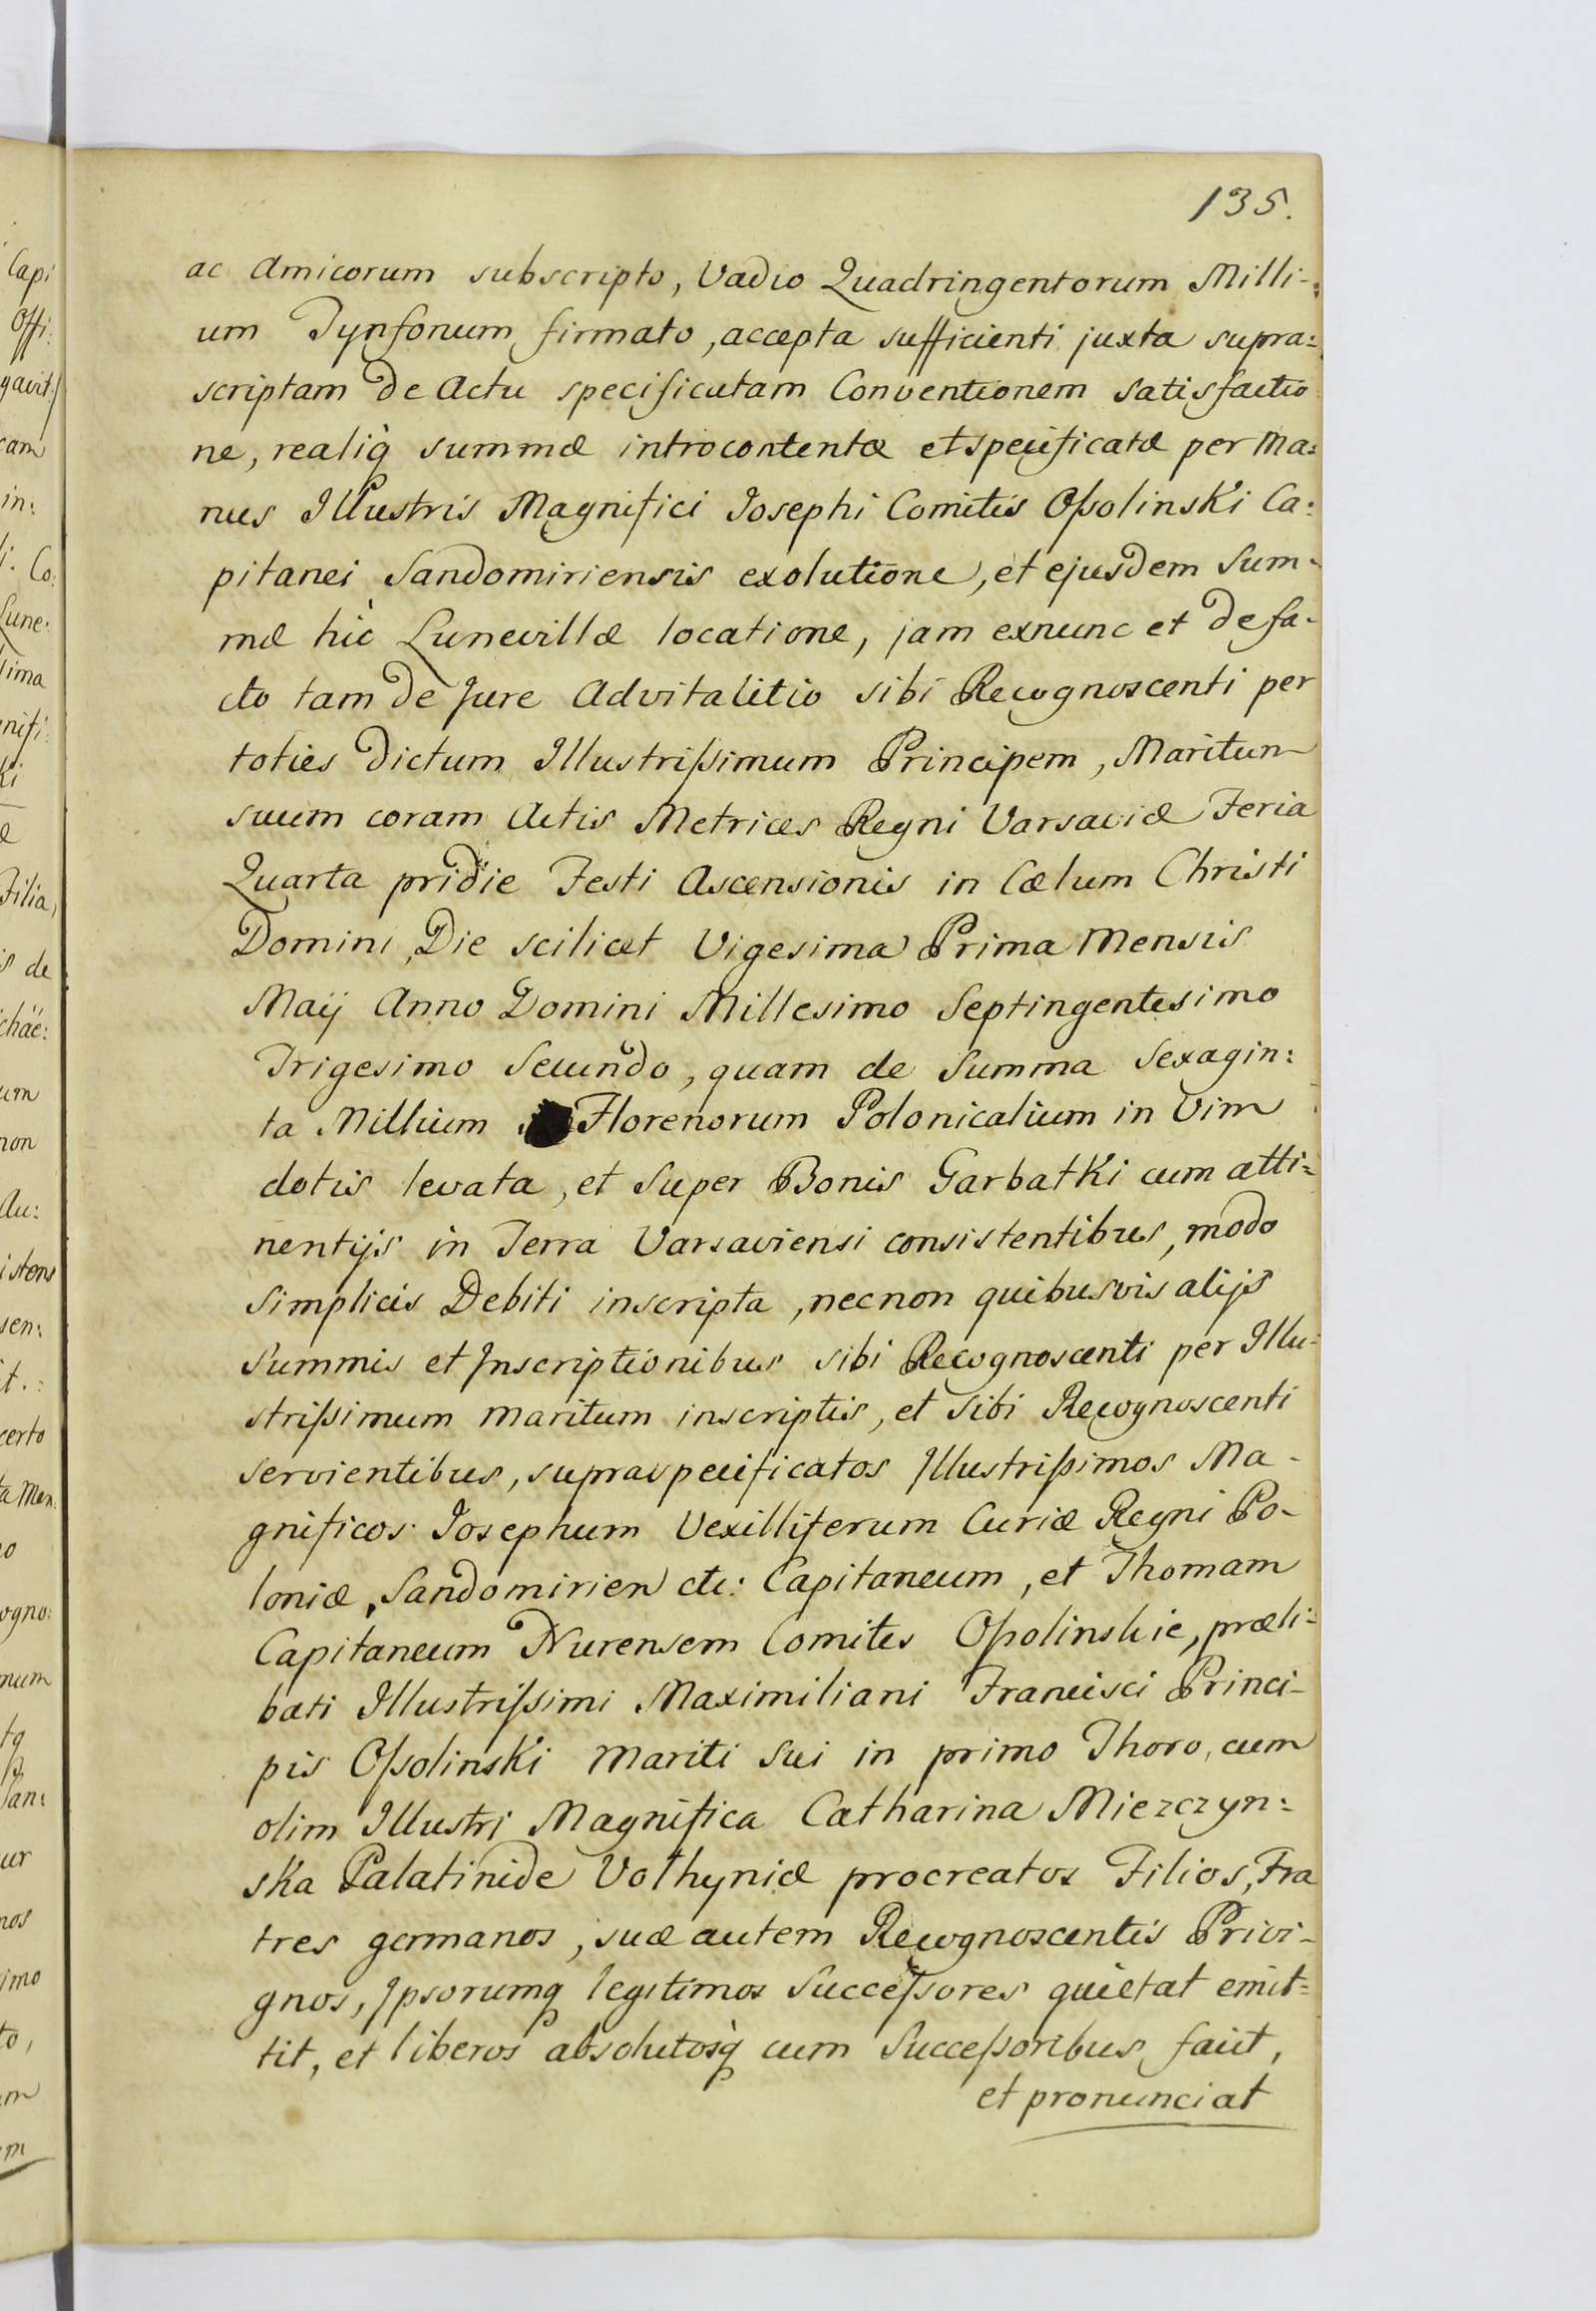 135.
ac Amicorum subscripto, Vadio Quadringentorum Milli-
um Tynfonum firmato, accepta sufficienti juxta supra:
scriptam de Actu specificatam Conventionem satisfactio
ne, realiq̀ summæ introcontentæ et specificatæ per Ma:
nus Illustris Magnifici Josephi Comitis Oſsolinski Ca:
pitanei Sandomiriensis exolutione, et ejusdem Sum-
mæ hìc Lunevillæ locatione, jam exnunc et de fa-
cto tam de Jure Advitalitio sibi Recognoscenti per
toties dictum Illustriſsimum Principem, Maritum
suum coram Actis Metrices Regni Varsaviæ Feria
Quarta pridie Festi Ascensionis in Cælum Christi
Domini, Die scilicet Vigesima Prima Mensis
Maÿ Anno Domini Millesimo Septingentesimo
Trigesimo Secundo, quam de Summa Sexagin:
ta Millium Florenorum Polonicalium in Vim
dotis levata, et Super Bonis Garbatki cum atti=
nentijs in Terra Varsaviensi consistentibus, modo
Simplicis Debiti inscripta, necnon quibusvis alijs
Summis et Inscriptionibus sibi Recognoscenti per Illu-
striſsimum maritum inscriptis, et Sibi Recognoscenti
servientibus, supraspecificatos Illustriſsimos Ma-
gnificos Josephum Vexilliferum Curiæ Regni Po-
loniæ, Sandomirien etc: Capitaneum, et Thomam
Capitaneum Nurensem Comites Oſsolinskie, præli-
bati Illustriſsimi Maximiliani Francisci Princi-
pis Oſsolinski Mariti Sui in primo Thoro, cum
olim Illustri Magnifica Catharina Miezczyn=
ska Palatinide Volhyniæ procreatos Filios, Fra
tres germanos, suæ autem Recognoscentis Privi-
gnos, Ipsorumq legitimos Succeſsores quietat emit=
tit, et liberos absolutosq̀ cum Succeſsoribus facit,
et pronunciat